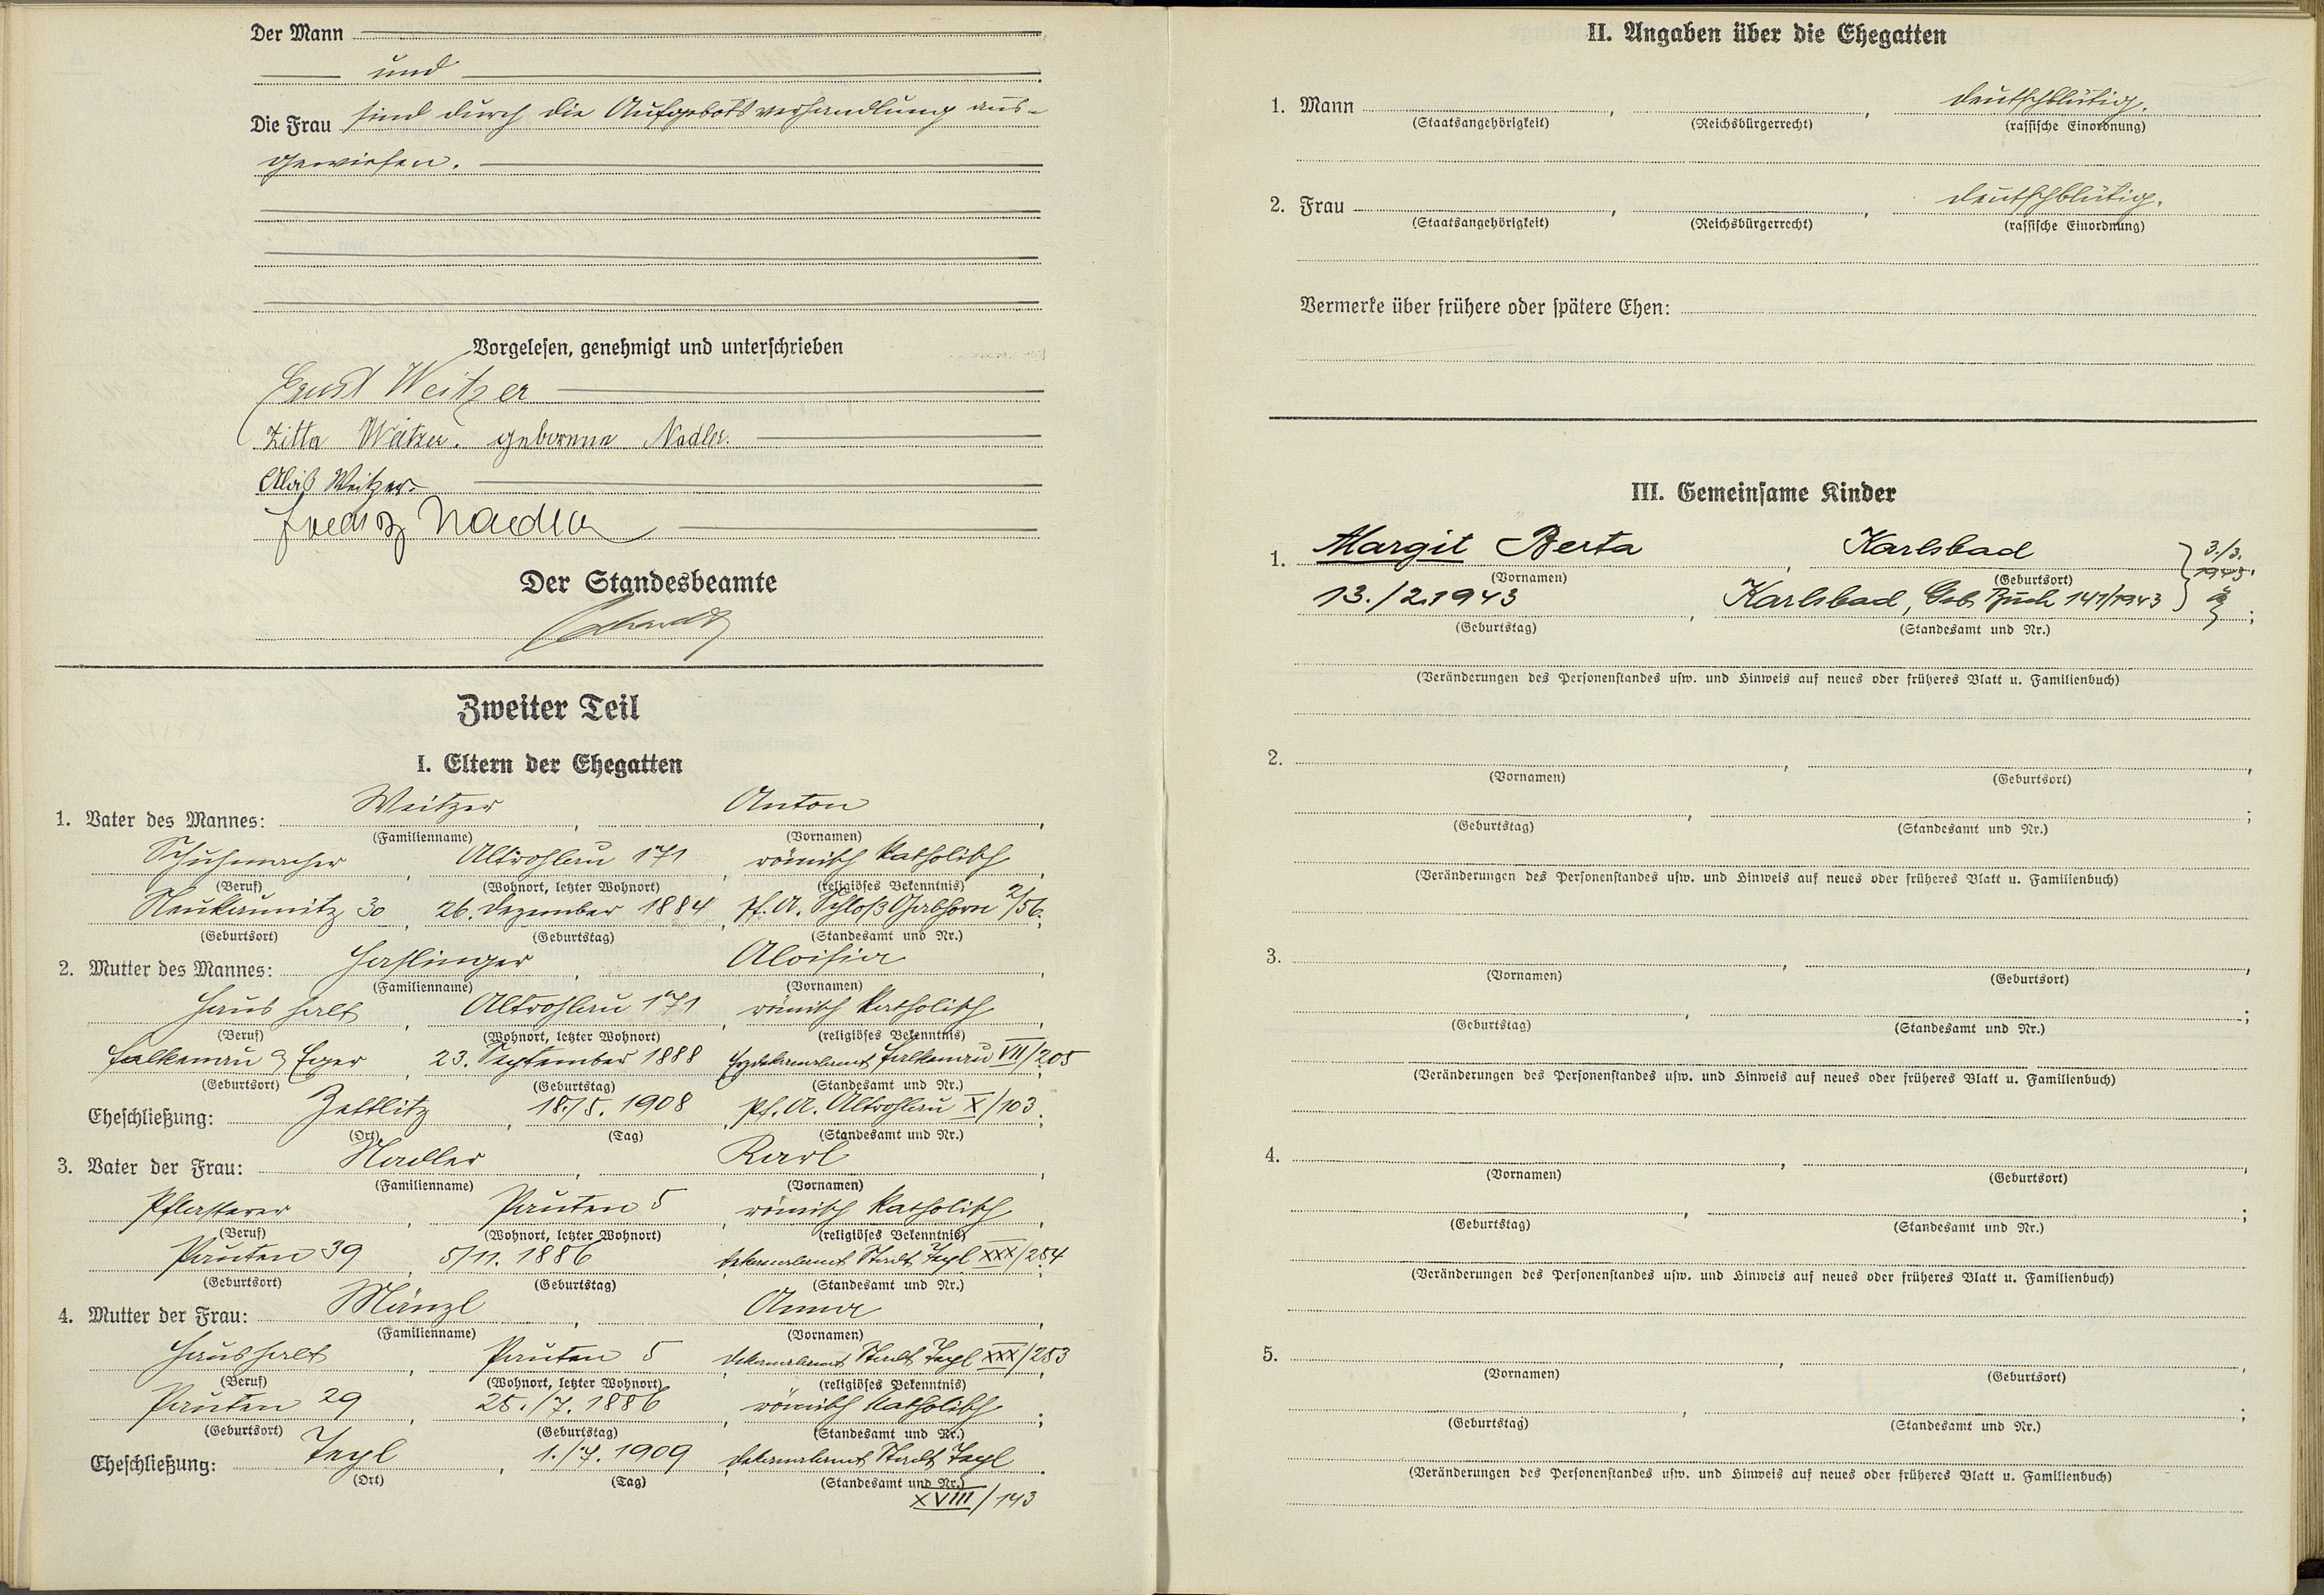 Der Mann
und
Die Frau sind durch die Aufgebotsverhandlung aus-
gewiesen.
Vorgelesen, genehmigt und unterschrieben
Ernst Weitzer
Zitta Weitzer. geborene Nadler.
Alois Weitzer.
Franz Nadler
Der Standesbeamte
Zweiter Teil
I. Eltern der Ehegatten
Weitzer Anton
1. Vater des Mannes: , ,
(Familienname) (Vornamen)
Schuhmacher , Altrohlau 171 , römisch katholisch ,
(Beruf) (Wohnort, letzter Wohnort) (religiöses Bekenntnis)
Neukaunitz 30 , 26. Dezember 1884 , Pf. A. Schloß Gabhorn 2/56.
(Geburtsort) (Geburtstag) (Standesamt und Nr.)
2. Mutter des Mannes: Haslinger , Aloisia ,
(Familienname) (Vornamen)
Haushalt , Altrohlau 171 , römisch katholisch ,
(Beruf) (Wohnort, letzter Wohnort) (religiöses Bekenntnis)
Falkenau a Eger , 23. September 1888 Erzdekanalamt Falkenau VII/205
(Geburtsort) (Geburtstag) (Standesamt und Nr.)
Eheschließung: Zettlitz , 18./5. 1908 , Pf. A. Altrohlau X/103 ;
(Ort) (Tag) (Standesamt und Nr.)
3. Vater der Frau: Nadler , Karl ,
(Familienname) (Vornamen)
Pflasterer , Pauten 5 , römisch katholisch ,
(Beruf) (Wohnort, letzter Wohnort) (religiöses Bekenntnis)
Pauten 39 , 5/11. 1886 Dekanalamt Stadt Tepl XXX/254
(Geburtsort) (Geburtstag) (Standesamt und Nr.)
4. Mutter der Frau: Mänzl , Anna ,
(Familienname) (Vornamen)
Haushalt , Pauten 5 Dekanalamt Stadt Tepl XXX/253
(Beruf) (Wohnort, letzter Wohnort) (religiöses Bekenntnis)
Pauten 29 , 25./7. 1886 , römisch katholisch ;
(Geburtsort) (Geburtstag) (Standesamt und Nr.)
Eheschließung: Tepl , 1./7. 1909 Dekanalamt Stadt Tepl
(Ort) (Tag) (Standesamt und Nr.)
XVIII/143
II. Angaben über die Ehegatten
1. Mann , , deutschblütig.
(Staatsangehörigkeit) (Reichsbürgerrecht) (rassische Einordnung)
2. Frau , , deutschblütig.
(Staatsangehörigkeit) (Reichsbürgerrecht) (rassische Einordnung)
Vermerke über frühere oder spätere Ehen:
III. Gemeinsame Kinder
1. Margit Berta , Karlsbad 3./3.
(Vornamen) (Geburtsort) 1943.
13./2.1943 , Karlsbad, Geb. Buch 141/1943 ;
(Geburtstag) (Standesamt und Nr.)
(Veränderungen des Personenstandes usw. und Hinweis auf neues oder früheres Blatt u. Familienbuch)
2. , ,
(Vornamen) (Geburtsort)
, ;
(Geburtstag) (Standesamt und Nr.)
(Veränderungen des Personenstandes usw. und Hinweis auf neues oder früheres Blatt u. Familienbuch)
3. , ,
(Vornamen) (Geburtsort)
, ;
(Geburtstag) (Standesamt und Nr.)
(Veränderungen des Personenstandes usw. und Hinweis auf neues oder früheres Blatt u. Familienbuch)
4. , ,
(Vornamen) (Geburtsort)
, ;
(Geburtstag) (Standesamt und Nr.)
(Veränderungen des Personenstandes usw. und Hinweis auf neues oder früheres Blatt u. Familienbuch)
5. , ,
(Vornamen) (Geburtsort)
, ;
(Geburtstag) (Standesamt und Nr.)
(Veränderungen des Personenstandes usw. und Hinweis auf neues oder früheres Blatt u. Familienbuch)